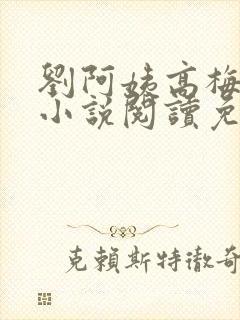 劉阿姨高梅
小說閱讀免
克賴斯特徹奇